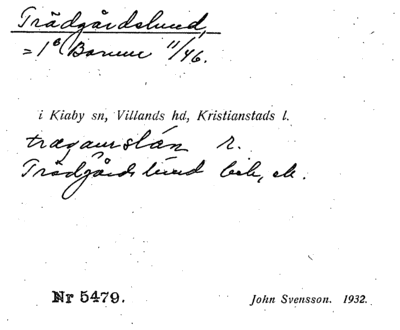 Trädgårdslund,
= 1⁶ Barum 11/46.
i Kiaby sn, Villands hd, Kristianstads l.
trægaurslán r.
Trädgårdslund
Nr 5479.
John Svensson. 1932.